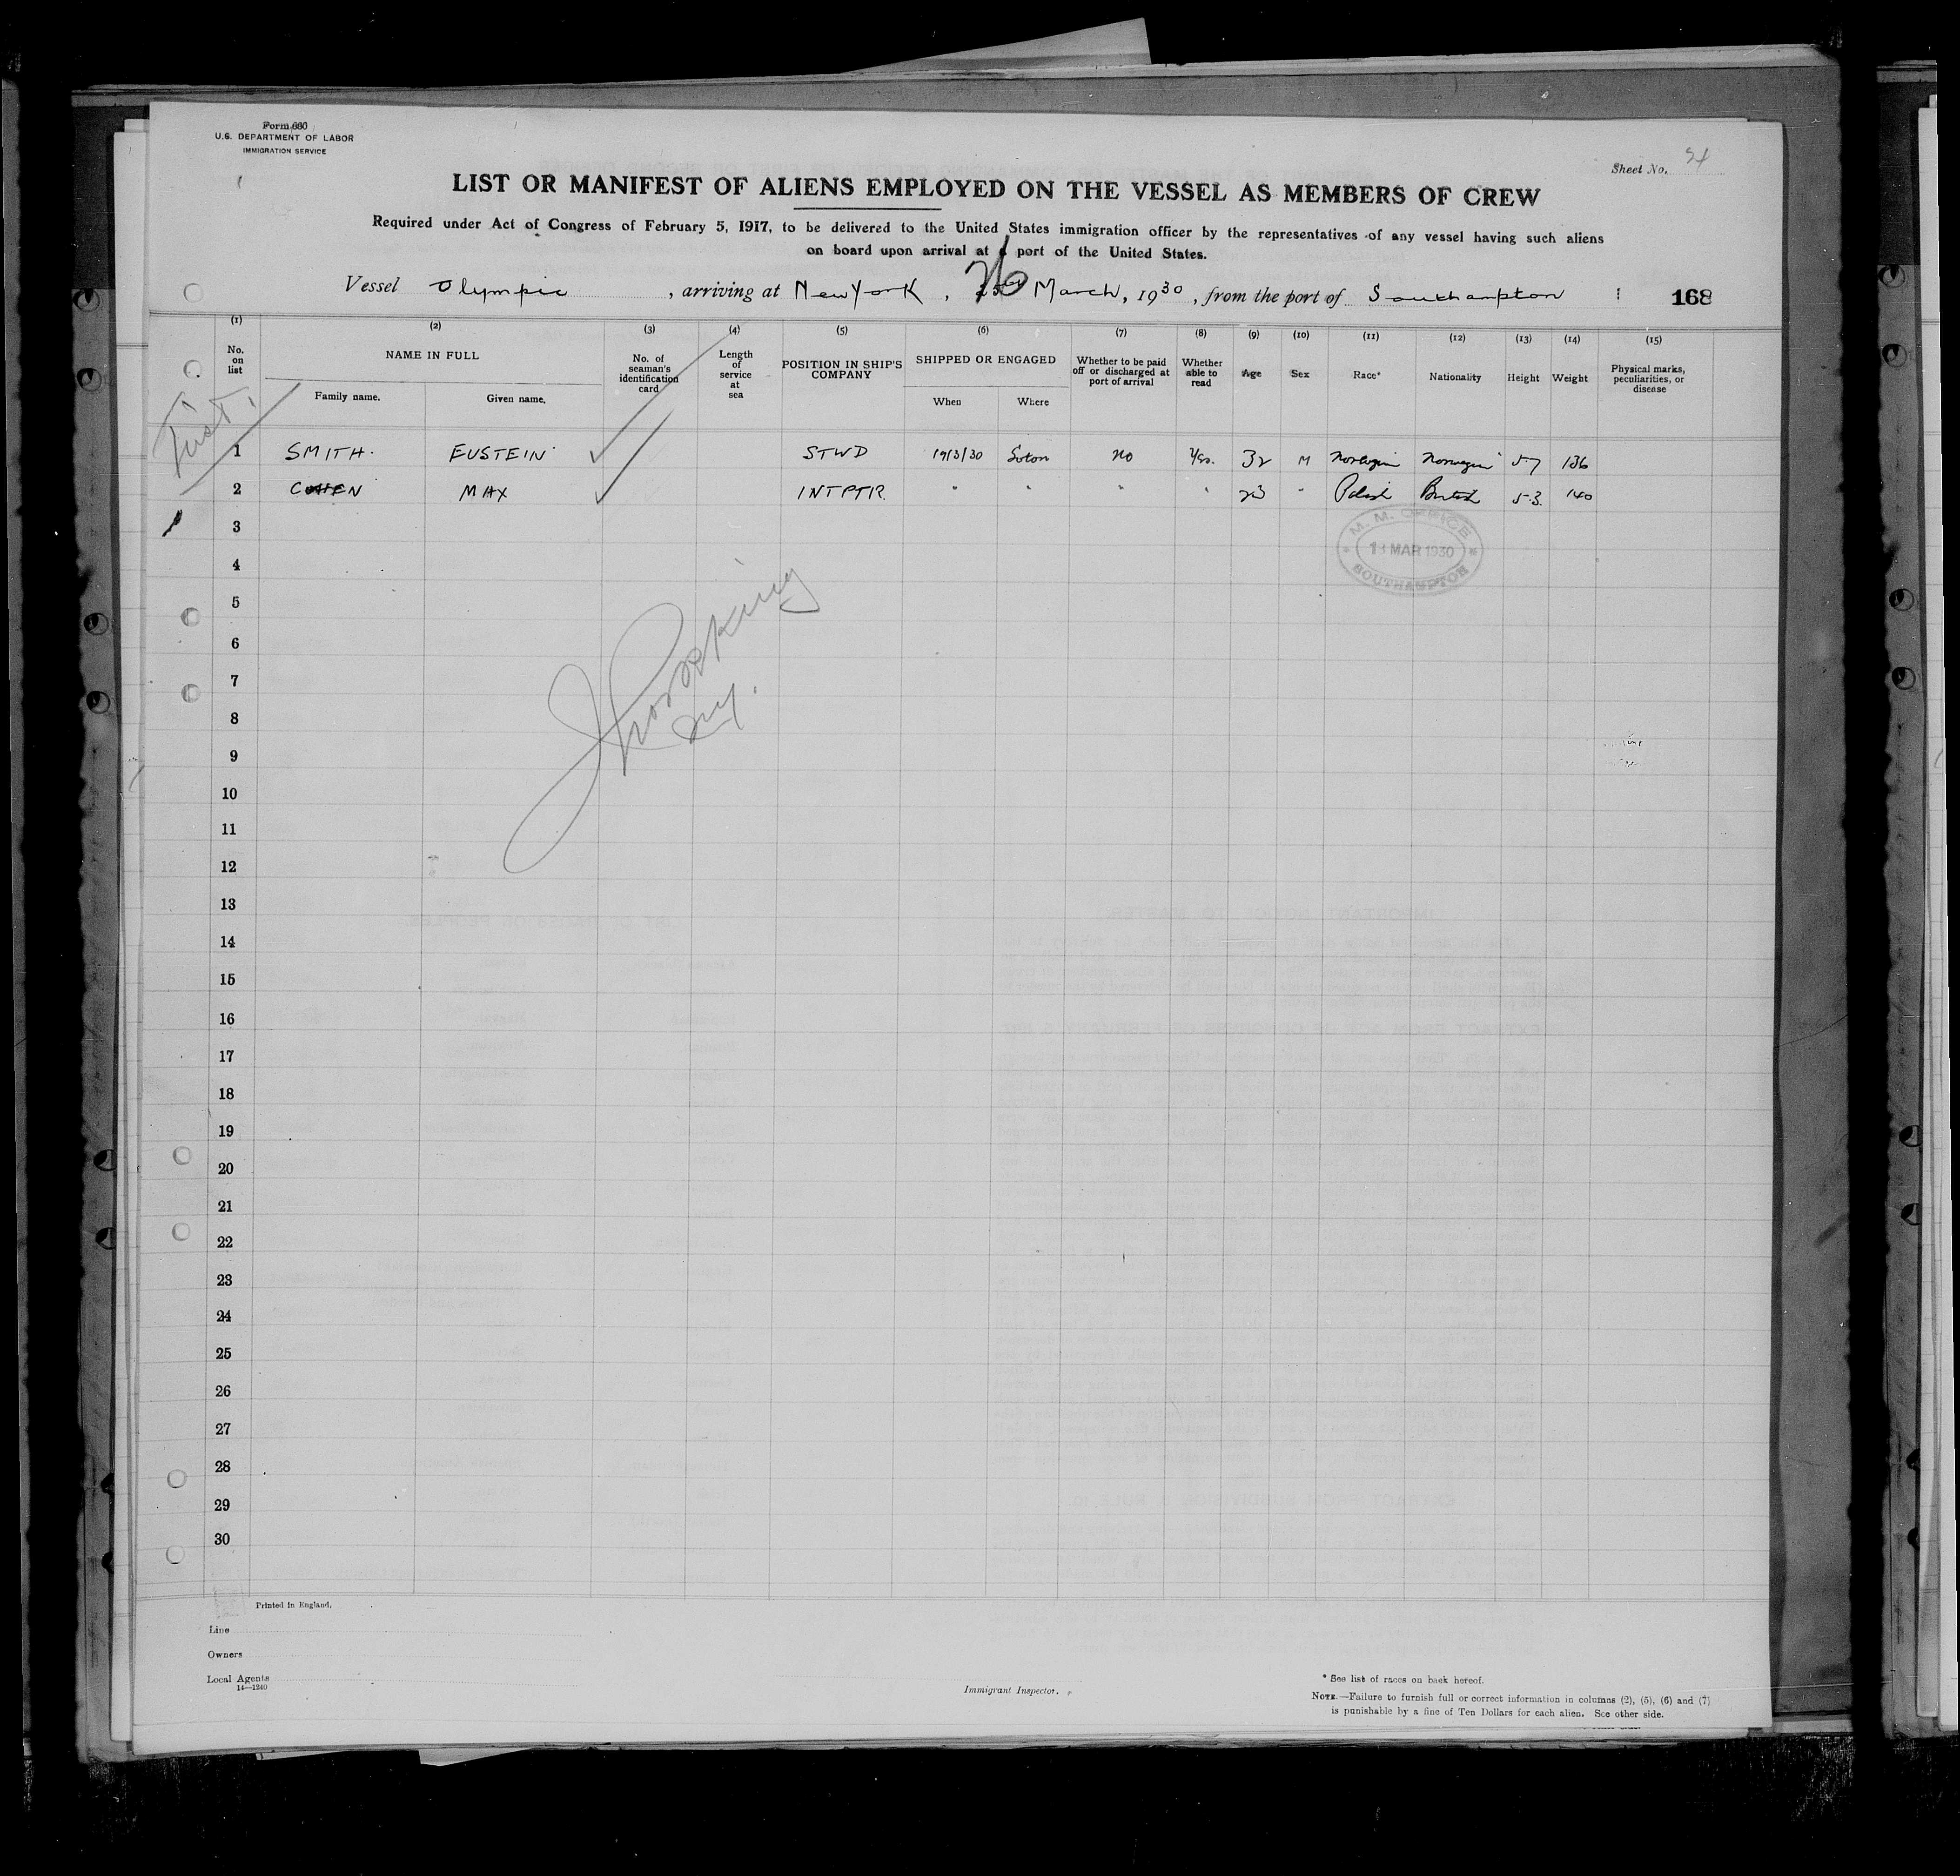 Form 680
U.S. DEPARTMENT OF LABOR
IMMIGRATION SERVICE
Sheet No.
LIST OR MANIFEST OF ALIENS EMPLOYED ON THE VESSEL AS MEMBERS OF CREW
Required under Act of Congress of February 5, 1917, to be delivered to the United States immigration officer by the representatives of any vessel having such aliens
on board upon arrival at a port of the United States.
Vessel Olympic, arriving at New York, 26 March, 1930, from the port of Southampton 168
(1) (2) (3) (4) (5) (6) (7) (8) (9) (10) (11) (12) (13) (14) (15)
No. on list NAME IN FULL Family name. Given name. No. of seaman's identification card Length of service at sea POSITION IN SHIP'S COMPANY SHIPPED OR ENGAGED When Where Whether to be paid off or discharged at port of arrival Whether able to read Age Sex Race* Nationality Height Weight Physical marks, peculiarities, or disease
First
1 SMITH. EUSTEIN STWD 19/3/30 Soton no Yes. 32 M Norwegian Norwegian 5-7 136
2 COHEN MAX INTPTR. " " " " 23 " Polish British 5-3. 140
M. M. OFFICE
MAR 1930
SOUTHAMPTON
3
4
5
6
7
8
9
10
11
12
13
14
15
16
17
18
19
20
21
22
23
24
25
26
27
28
29
30
Printed in England.
Line
Owners
Local Agents
14—1240
Immigrant Inspector.
* See list of races on back hereof.
NOTE.—Failure to furnish full or correct information in columns (2), (5), (6) and (7)
is punishable by a fine of Ten Dollars for each alien. See other side.